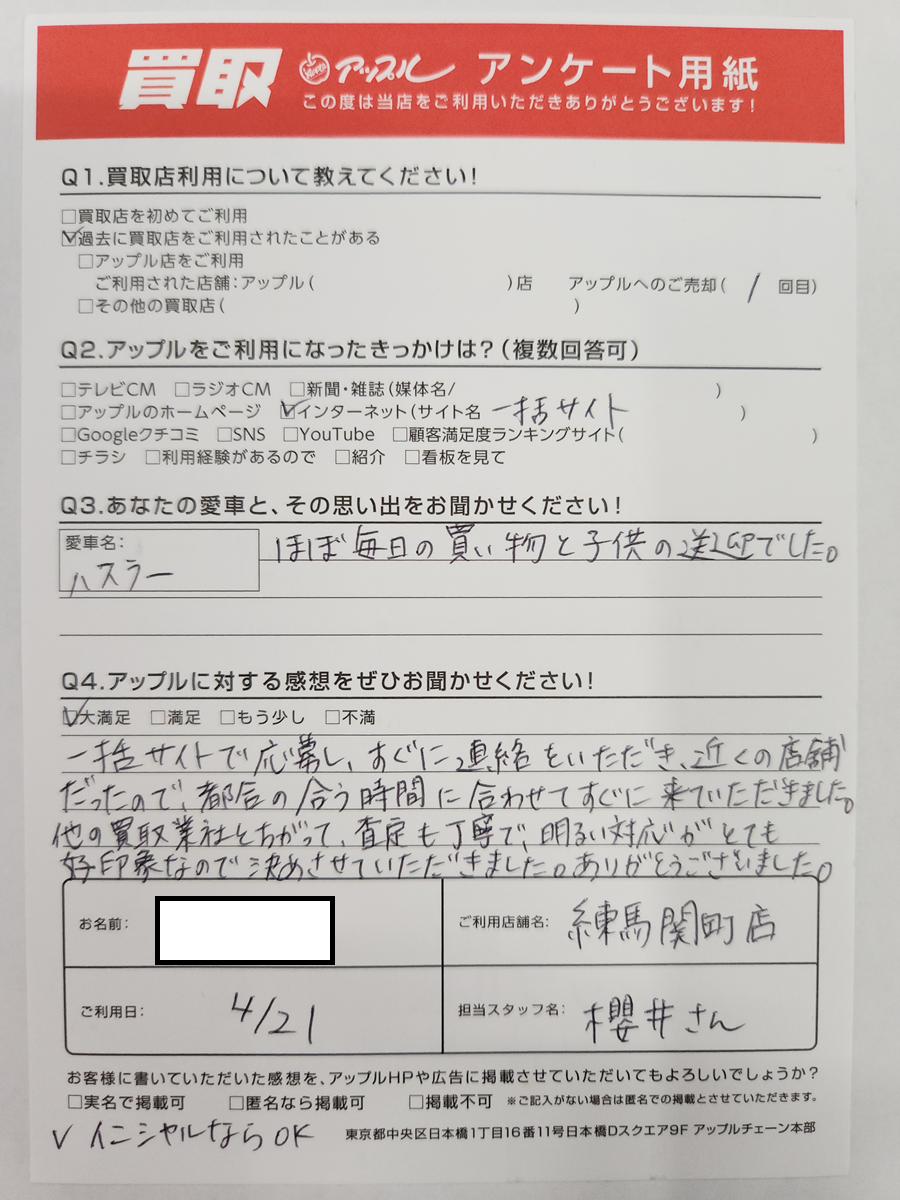 買取 アップル アンケート用紙
この度は当店をご利用いただきありがとうございます！
Q1.買取店利用について教えてください！
□買取店を初めてご利用
☑過去に買取店をご利用されたことがある
□アップル店をご利用
ご利用された店舗：アップル（ ）店 アップルへのご売却（ 1 回目）
□その他の買取店（ ）
Q2.アップルをご利用になったきっかけは？（複数回答可）
□テレビCM □ラジオCM □新聞・雑誌（媒体名/ ）
□アップルのホームページ ☑インターネット（サイト名 一括サイト ）
□Googleクチコミ □SNS □YouTube □顧客満足度ランキングサイト（ ）
□チラシ □利用経験があるので □紹介 □看板を見て
Q3.あなたの愛車と、その思い出をお聞かせください！
愛車名：
ハスラー
ほぼ毎日の買い物と子供の送迎でした。
Q4.アップルに対する感想をぜひお聞かせください！
☑大満足 □満足 □もう少し □不満
一括サイトで応募し、すぐに連絡をいただき、近くの店舗
だったので、都合の合う時間に合わせてすぐに来ていただきました。
他の買取業社とちがって、査定も丁寧で、明るい対応がとても
好印象なので決めさせていただきました。ありがとうございました。
お名前： ご利用店舗名： 練馬関町店
ご利用日： 4/21 担当スタッフ名： 櫻井さん
お客様に書いていただいた感想を、アップルHPや広告に掲載させていただいてもよろしいでしょうか？
□実名で掲載可 □匿名なら掲載可 □掲載不可 ※ご記入がない場合は匿名での掲載とさせていただきます。
✓ イニシャルならOK 東京都中央区日本橋1丁目16番11号日本橋Dスクエア9F アップルチェーン本部